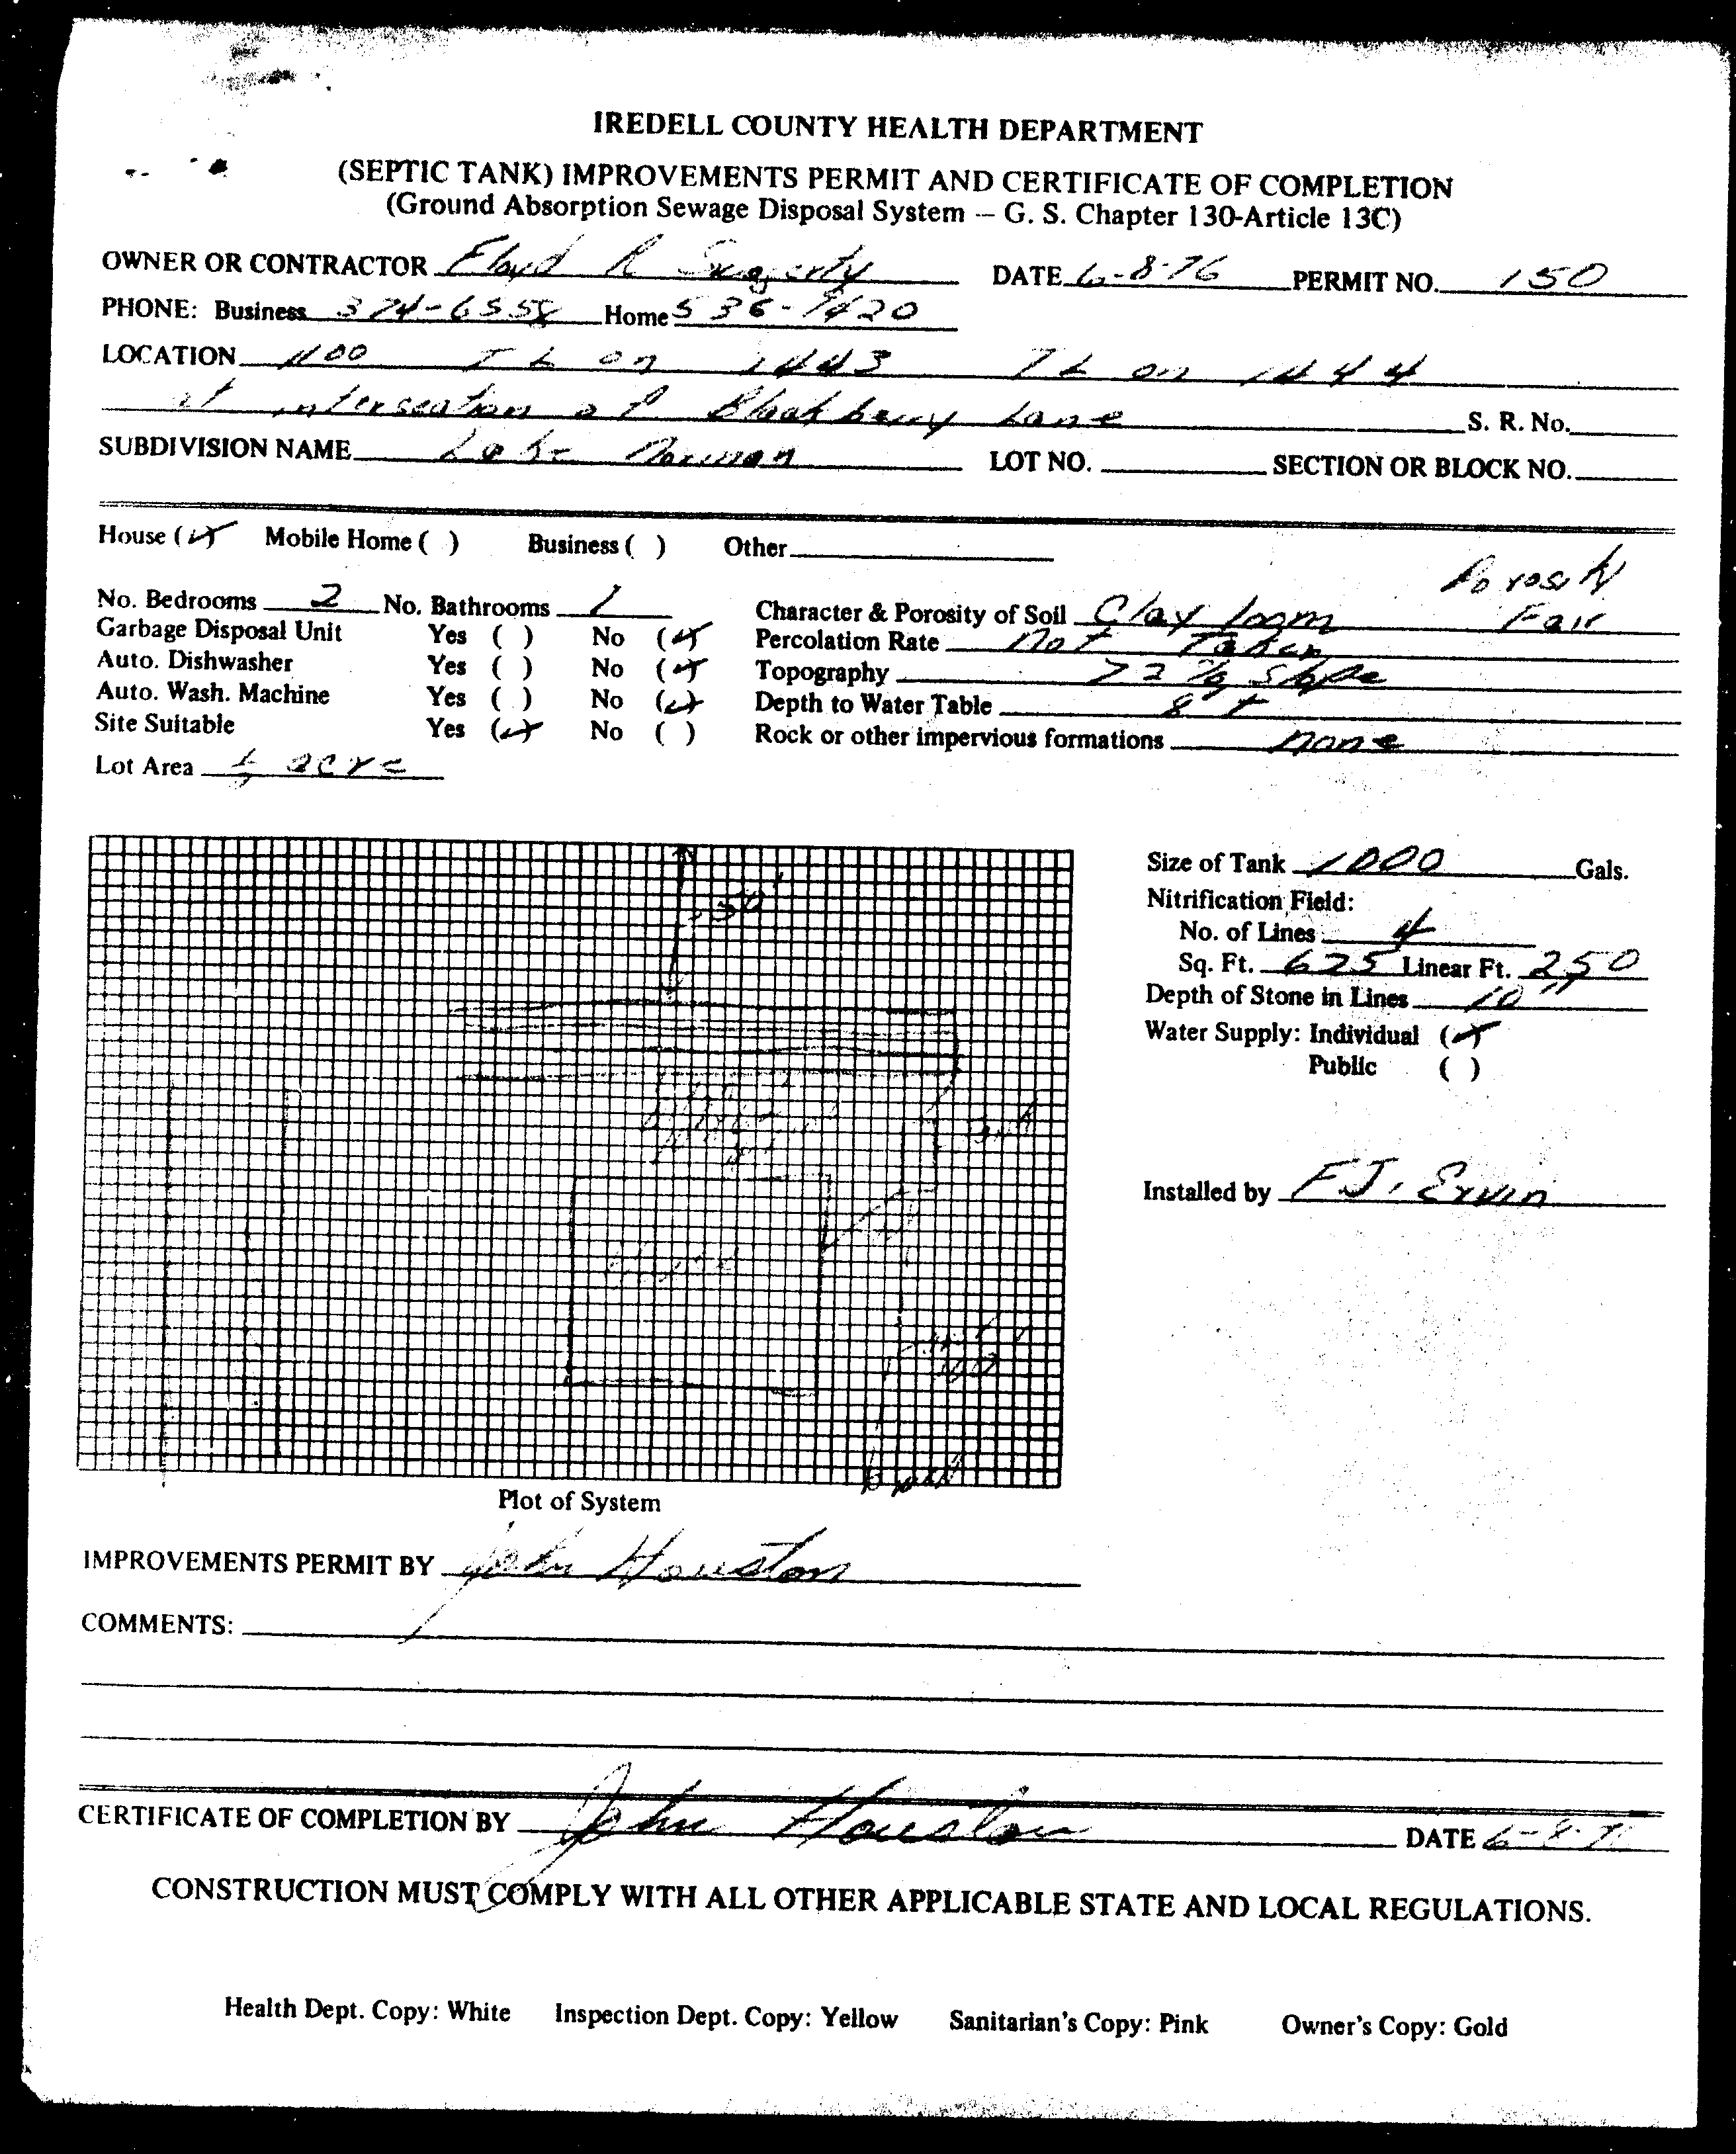 IREDELL COUNTY HEALTH DEPARTMENT
(SEPTIC TANK) IMPROVEMENTS PERMIT AND CERTIFICATE OF COMPLETION
(Ground Absorption Sewage Disposal System — G. S. Chapter 130-Article 13C)
OWNER OR CONTRACTOR Floyd R DATE 6-8-76 PERMIT NO. 150
PHONE: Business 374-6558 Home 536-
LOCATION 1100 T L on 1443 T L on 1444
at intersection of Blackberry Lane S. R. No.
SUBDIVISION NAME Lake Norman LOT NO. SECTION OR BLOCK NO.
House (✓) Mobile Home ( ) Business ( ) Other
Porosity
No. Bedrooms 2 No. Bathrooms 1 Character & Porosity of Soil Clay loam Fair
Garbage Disposal Unit Yes ( ) No (✓) Percolation Rate not Taken
Auto. Dishwasher Yes ( ) No (✓) Topography >2% Slope
Auto. Wash. Machine Yes ( ) No (✓) Depth to Water Table 8'+
Site Suitable Yes (✓) No ( ) Rock or other impervious formations none
Lot Area ½ acre
Size of Tank 1000 Gals.
Nitrification Field:
No. of Lines 4
Sq. Ft. 625 Linear Ft. 250
Depth of Stone in Lines 10"
Water Supply: Individual (✓)
Public ( )
Installed by F.J. Ervin
50'
well
Plot of System
IMPROVEMENTS PERMIT BY John Houston
COMMENTS:
CERTIFICATE OF COMPLETION BY John Houston DATE 6-8-76
CONSTRUCTION MUST COMPLY WITH ALL OTHER APPLICABLE STATE AND LOCAL REGULATIONS.
Health Dept. Copy: White Inspection Dept. Copy: Yellow Sanitarian's Copy: Pink Owner's Copy: Gold